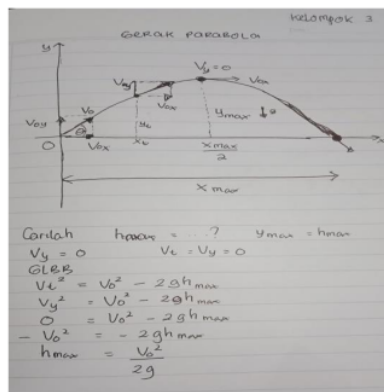 Kelompok 3
GERAK PARABOLA
y
Vy = 0
Vox
Voy
Vo
Vox
yt
ymax
g
O
Vox
xt
xmax
2
x max
Carilah hmax = ...? ymax = hmax
Vy = 0 Vt = Vy = 0
GLBB
Vt² = Vo² - 2ghmax
Vy² = Vo² - 2ghmax
0 = Vo² - 2ghmax
- Vo² = - 2ghmax
hmax = Vo²
2g